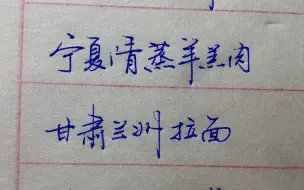 宁夏清蒸羊羔肉
甘肃兰州拉面